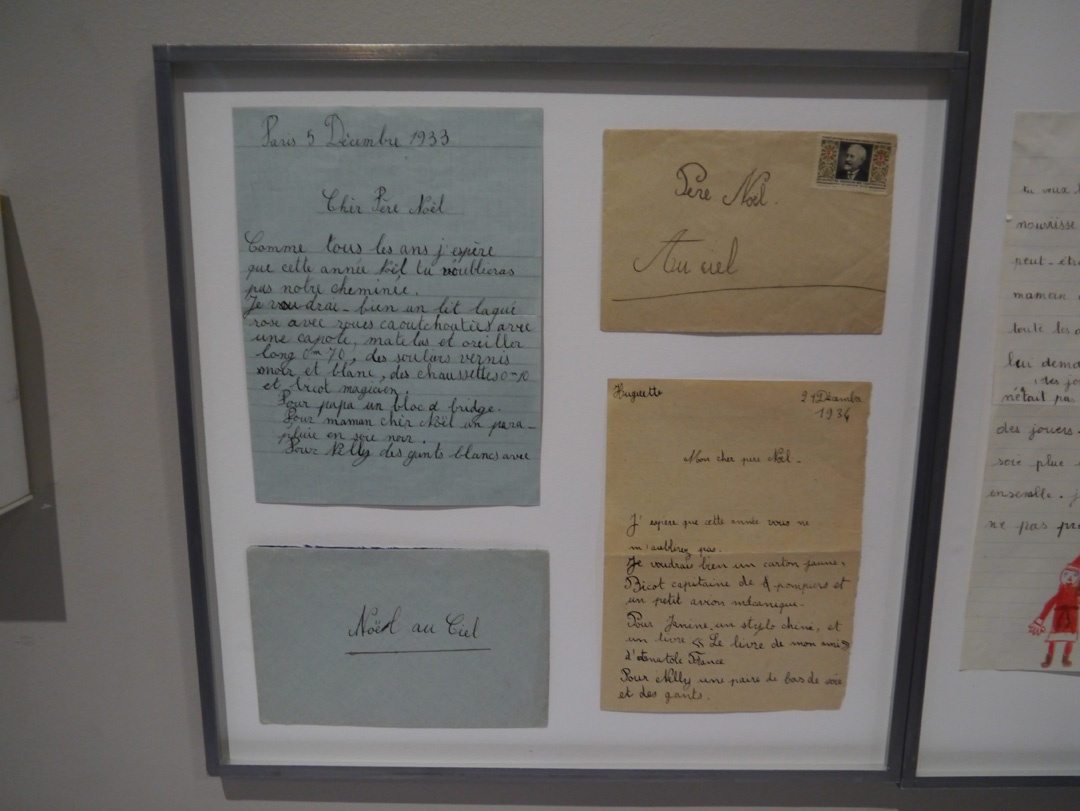 Paris 5 Décembre 1933
Cher Père Noël
Comme tous les ans j'espère
que cette année Noël tu n'oublieras
pas notre cheminée.
Je voudrai bien un lit laqué
rose avec roues caoutchoutées avec
une capote, matelas et oreiller
long 0m 70, des souliers vernis
noir et blanc, des chaussettes
et tricot magicien
Pour papa un bloc d bridge.
Pour maman cher Noël un para-
pluie en soie noir.
Pour Nelly des gants blancs avec
Noël au Ciel
Père Noël.
Au ciel
Huguette
21 Décembre
1934
Mon cher père Noël.
J'espère que cette année vous ne
m'oublirez pas.
Je voudrais bien un carton jaune,
Bicot capitaine de pompiers et
un petit avion mécanique.
Pour Janine, un stylo chiné, et
un livre « Le livre de mon ami »
d'Anatole France
Pour Nelly une paire de bas de soie
et des gants.
tu veux
nourrisse
peut-être
maman
toute les
lui dema
des jo
n'était pas
des jouers
soie plue
ensemble.
ne pas